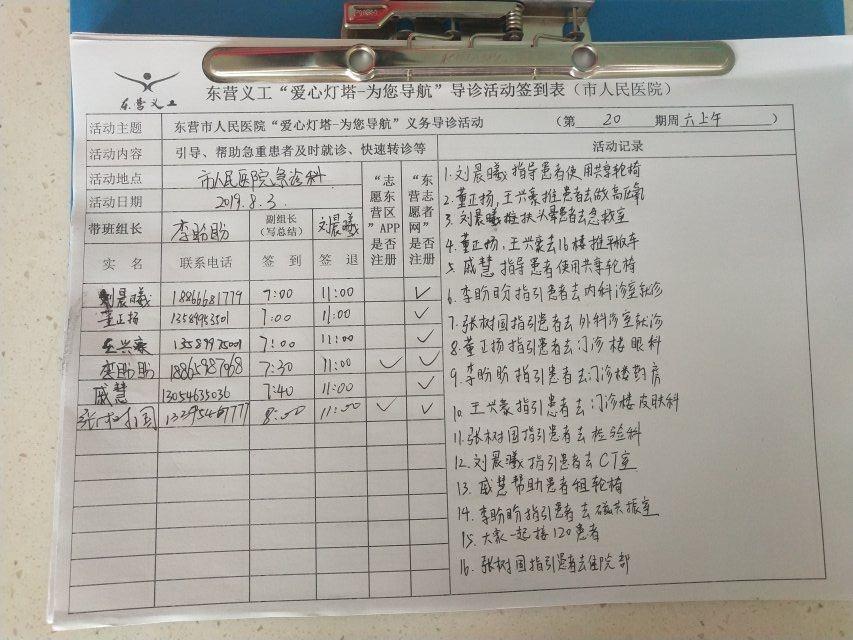 东营义工
东营义工“爱心灯塔-为您导航”导诊活动签到表（市人民医院）
活动主题 东营市人民医院“爱心灯塔-为您导航”义务导诊活动 （第 20 期周六上午 ）
活动内容 引导、帮助急重患者及时就诊、快速转诊等 活动记录
活动地点 市人民医院急诊科
活动日期 2019.8.3.
带班组长 李盼盼 副组长（写总结） 刘晨曦
“志愿东营区”APP是否注册
“东营志愿者网”是否注册
实名 联系电话 签到 签退
刘晨曦 18866681779 7:00 11:00 ✓
董正扬 13589953501 7:00 11:00 ✓
王兴豪 13589975001 7:00 11:00 ✓
李盼盼 18865987968 7:30 11:00 ✓ ✓
戚慧 13054635036 7:40 11:00 ✓
张树国 13295467777 8:00 11:00 ✓ ✓
1.刘晨曦指导患者使用共享轮椅
2.董正扬,王兴豪推患者去做高压氧
3.刘晨曦推扶头晕患者去急救室
4.董正扬,王兴豪去16楼推平板车
5.戚慧指导患者使用共享轮椅
6.李盼盼指引患者去内科诊室就诊
7.张树国指引患者去外科诊室就诊
8.董正扬指引患者去门诊楼眼科
9.李盼盼指引患者去门诊楼药房
10.王兴豪指引患者去门诊楼皮肤科
11.张树国指引患者去检验科
12.刘晨曦指引患者去CT室
13.戚慧帮助患者租轮椅
14.李盼盼指引患者去磁共振室
15.大家一起接120患者
16.张树国指引患者去住院部